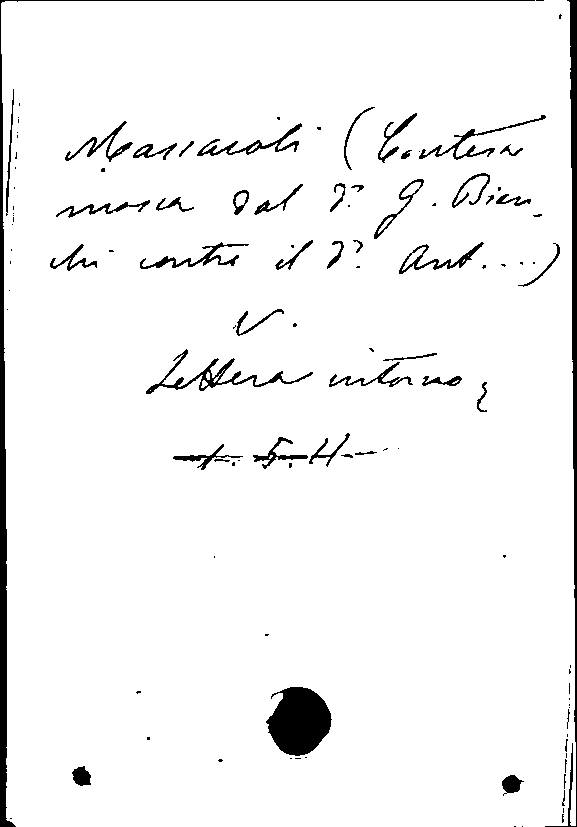 Massaioli (Contesa
mossa dal Dr. G. Bian-
chi contro il Dr. Ant. ...)
V.
Lettera intorno